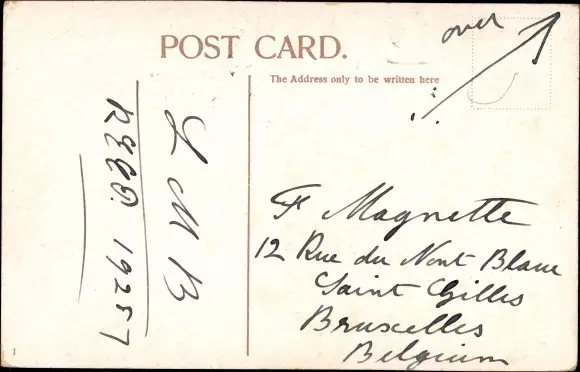 POST CARD.
over
The Address only to be written here
L M B
REGD. 19257
F Magnette
12 Rue du Mont Blanc
Saint Gilles
Bruxelles
Belgium
1